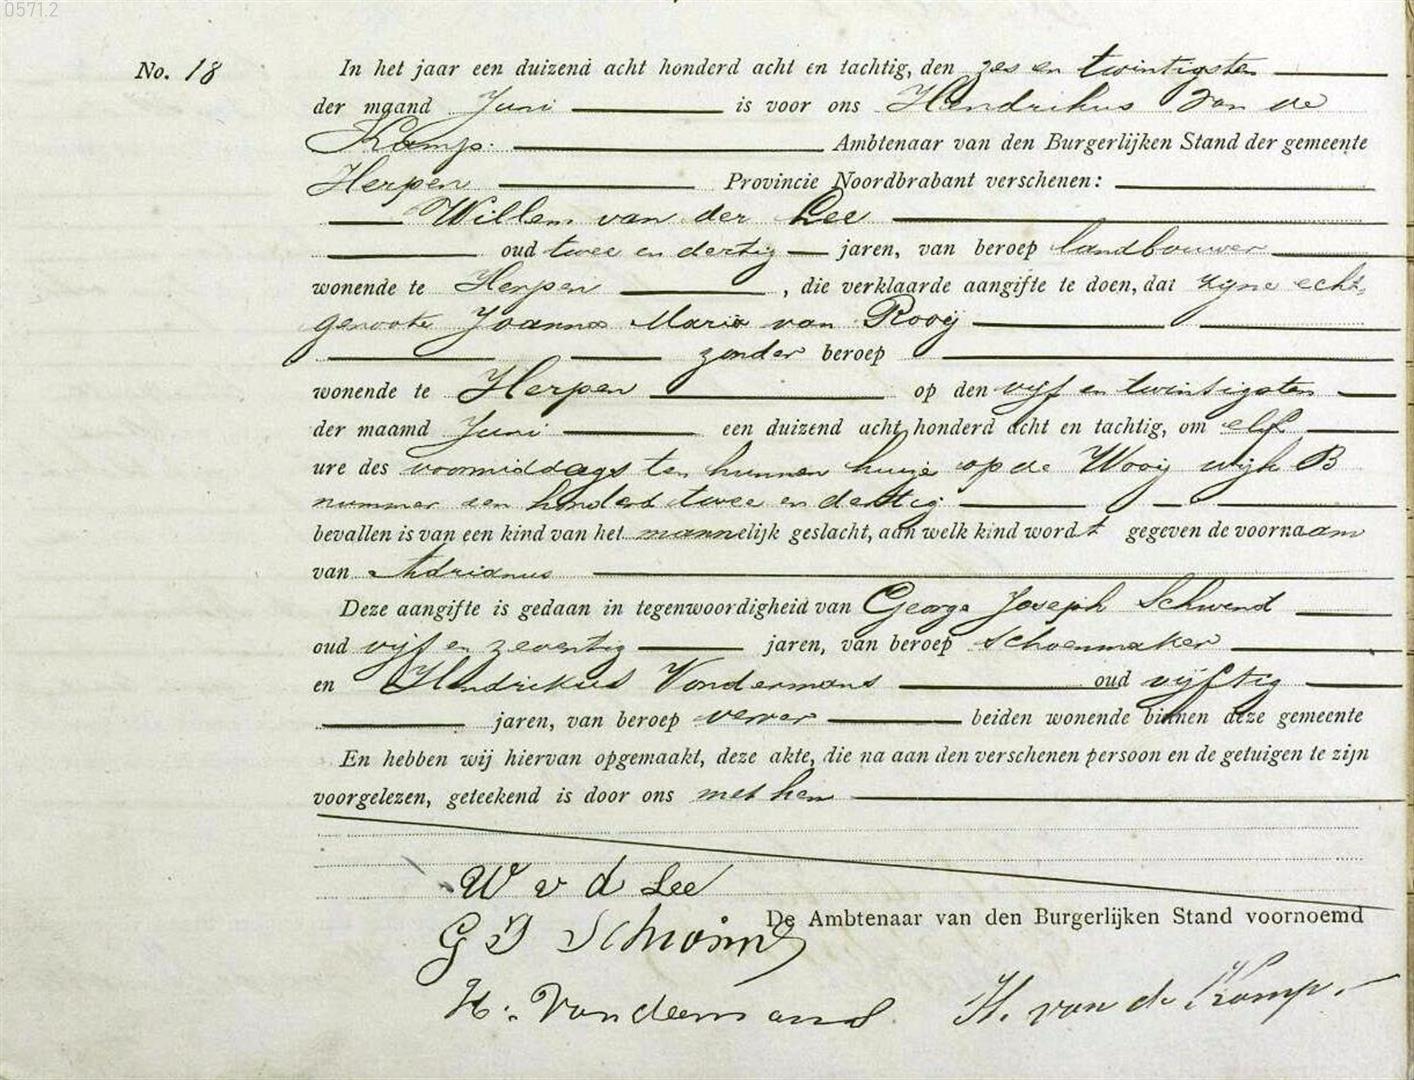 0571.2
No. 18 In het jaar een duizend acht honderd acht en tachtig, den zes en twintigsten
der maand Juni is voor ons Hendrikus van de
Kamp. Ambtenaar van den Burgerlijken Stand der gemeente
Herpen Provincie Noordbrabant verschenen:
Willem van der Lee
oud twee en dertig jaren, van beroep landbouwer
wonende te Herpen, die verklaarde aangifte te doen, dat zijne echt-
genoote Joanna Maria van Rooij
zonder beroep
wonende te Herpen op den vijf en twintigsten
der maamd Juni een duizend acht honderd acht en tachtig, om elf
ure des voormiddags ten hunnen huize op de Wooij wijk B
nummer een honderd twee en dertig
bevallen is van een kind van het mannelijk geslacht, aan welk kind wordt gegeven de voornaam
van Adrianus
Deze aangifte is gedaan in tegenwoordigheid van George Joseph Schwend
oud vijf en zeventig jaren, van beroep schoenmaker
en Hendrikus Vondermans oud vijftig
jaren, van beroep verver beiden wonende binnen deze gemeente
En hebben wij hiervan opgemaakt, deze akte, die na aan den verschenen persoon en de getuigen te zijn
voorgelezen, geteekend is door ons met hen
W v d Lee
De Ambtenaar van den Burgerlijken Stand voornoemd
G J
H. Vondermans H. van de Kamp.